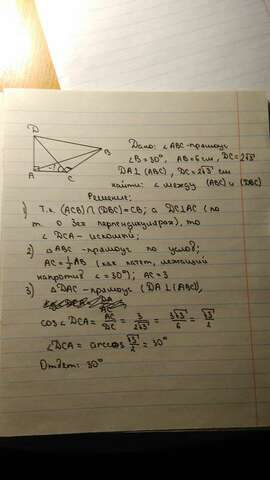 D
B
A
C
Дано: ∠ABC - прямоуг
∠B = 30°, AB = 6 см, DC = 2√3
DA ⊥ (ABC), DC = 2√3 см
найти: ∠ между (ABC) и (DBC)
Решение:
1) Т.к. (ACB) ∩ (DBC) = CB; а DC ⊥ AC (по
т. о 3ех перпендикулярах), то
∠DCA - искомый;
2) △ABC - прямоуг по услов;
AC = 1/2 AB (как катет, лежащий
напротив ∠ = 30°); AC = 3
3) △DAC - прямоуг (DA ⊥ (ABC)),
cos ∠DCA = AC/DC = 3/2√3 = 3√3/6 = √3/2
∠DCA = arccos √3/2 = 30°
Ответ: 30°